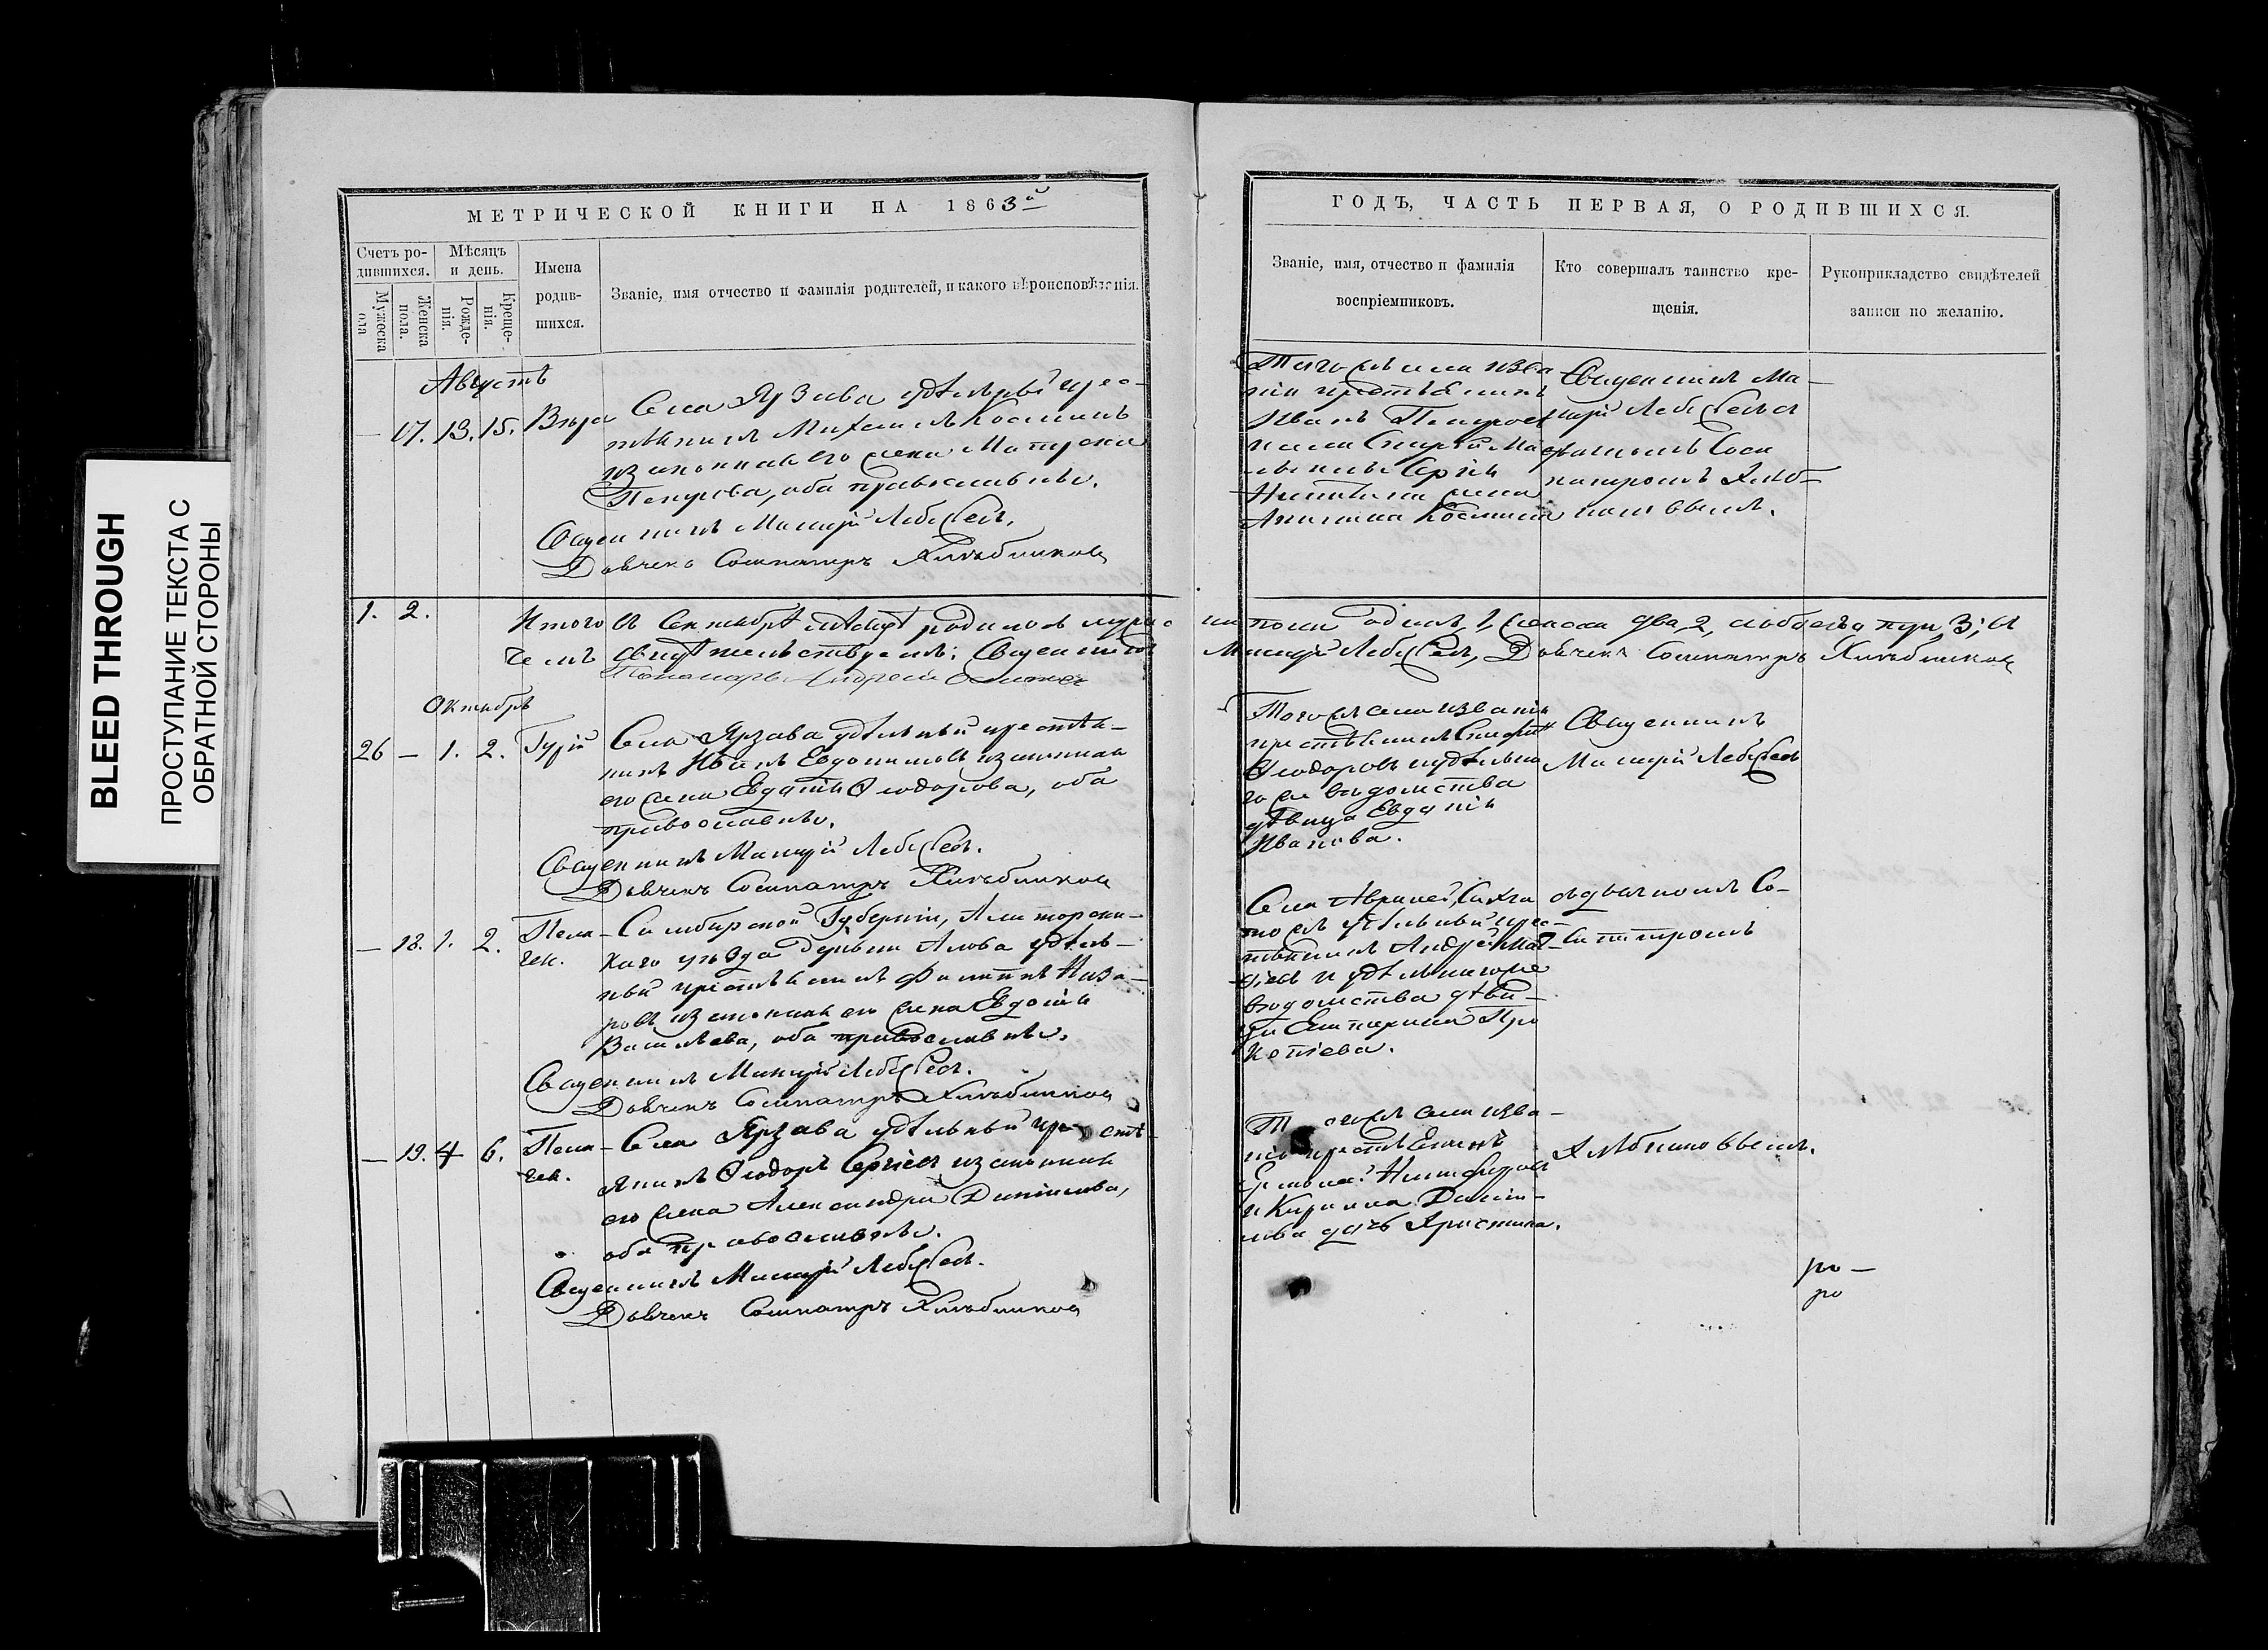 BLEED THROUGH
ПРОСТУПАНИЕ ТЕКСТА С
ОБРАТНОЙ СТОРОНЫ
МЕТРИЧЕСКОЙ КНИГИ НА 1863й
Счетъ ро-
дившихся.
Мужеска
Женска
пола.
Мѣсяцъ
и день.
Рожде-
нія.
Креще-
нія.
Имена
родив-
шихся.
Званіе, имя отчество и фамилія родителей, и какого вѣроисповѣданія.
Августъ
— 17. 13. 15. Вѣра
Села Ярзава удѣльный крес-
тьянинъ Михаилъ Косминъ
и законная его жена Матрона
Петрова, оба православные.
Священникъ Лебедевъ.
Дьячекъ Сосипатръ Хлѣбников
1. 2.
Итого въ Сентябрѣ мѣсяцѣ родилось мужес
чемъ свидѣтельствуемъ: Священникъ
Пономарь Андрей
Октябрь
26 — 1. 2. Гурій
Села Ярзава удѣльный крестья-
нинъ Иванъ Евдокимовъ и законная
его жена Евдокія Ѳеодорова, оба
православные.
Священникъ Лебедевъ.
Дьячекъ Сосипатръ Хлѣбников
— 18. 1. 2. Пела-
гея.
Симбирской Губерніи, Алаторска-
каго уѣзда деревни Алова удѣль-
ный крестьянинъ Филиппъ Наза-
ровъ и законная его жена Евдокія
Васильева, оба православные.
Священникъ Лебедевъ.
Дьячекъ Сосипатръ Хлѣбников
— 19. 4 6. Пела-
гея.
Села Ярзава удѣльный кресть-
янинъ Ѳеодоръ Сергіевъ и законная
его жена Александра Даниилова,
оба православные.
Священникъ Лебедевъ.
Дьячекъ Сосипатръ Хлѣбников
ГОДЪ, ЧАСТЬ ПЕРВАЯ, О РОДИВШИХСЯ.
Званіе, имя, отчество и фамилія
воспріемниковъ.
Кто совершалъ таинство кре-
щенія.
Рукоприкладство свидѣтелей
записи по желанію.
Тогожъ села и зва-
нія крестьянинъ
Иванъ Петровъ
Сергія
Никитина жена
Космина
Священникъ
Лебедевъ съ
дьячкомъ Соси
патромъ Хлѣб-
никовымъ.
ка пола одинъ, 1, женска два, 2, обоего три, 3; въ
Лебедевъ, Дьячекъ Сосипатръ Хлѣбников
Тогожъ села и званія
крестьянинъ
Ѳеодоровъ и удѣльна
го же вѣдомства
дѣвица Евдокія
Иванова.
Священникъ
Лебедевъ
Села
удѣльный крес-
тьянинъ Андрей Мат-
ѳіевъ и удѣльнагоже
вѣдомства дѣви-
ца Екатерина Про
копіева.
съ дьячкомъ Со-
сипатромъ
Тогожъ села и зва-
нія крестьянинъ
и Кирилла Даніи-
лова дочь Христина.
Хлѣбниковымъ.
ро—
ро